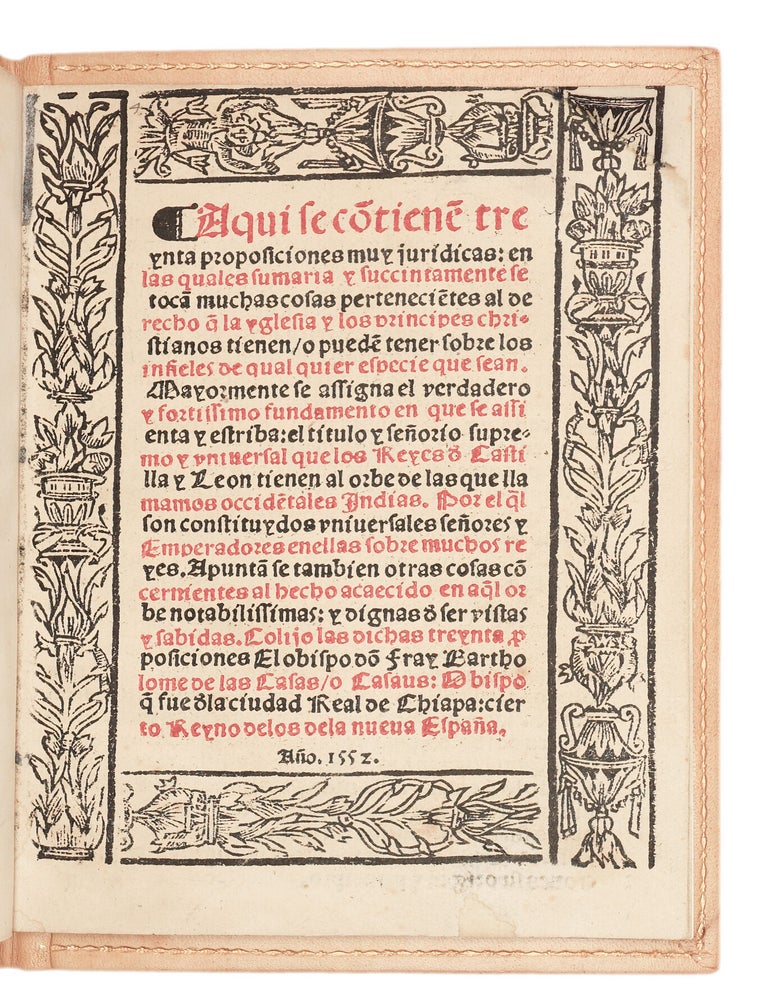 Aqui se cōtienē tre
ynta proposiciones muy juridicas: en
las quales sumaria y succintamente se
tocā muchas cosas perteneciētes al de
recho q̄ la yglesia y los principes chri-
stianos tienen/o puedē tener sobre los
infieles de qual quier especie que sean.
Mayormente se assigna el verdadero
y fortissimo fundamento en que se assi
enta y estriba: el titulo y señorio supre-
mo y vniuersal que los Reyes đ Casti
lla y Leon tienen al orbe de las que lla
mamos occidētales Indias. Por el q̄l
son constituydos vniuersales señores y
Emperadores enellas sobre muchos re
yes. Apuntā se tambien otras cosas cō
cernientes al hecho acaecido en aq̄l or
be notabilissimas: y dignas đ ser vistas
y sabidas. Colijo las dichas treynta ꝓ
posiciones El obispo dō Fray Bartho
lome de las Casas/o Casaus: Obispo
q̄ fue đla ciudad Real de Chiapa: cier
to Reyno delos dela nueua España.
Año. 1552.